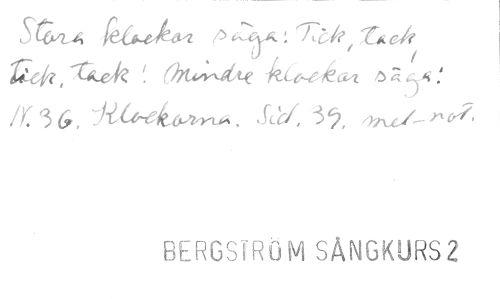 Stora klockor säga: Tick, tack,
tick, tack! Mindre klockor säga:
N. 36. Klockorna. Sid. 39. mel-not.
BERGSTRÖM SÅNGKURS 2